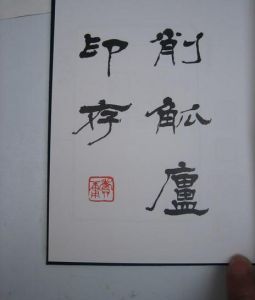 削觚廬
印存